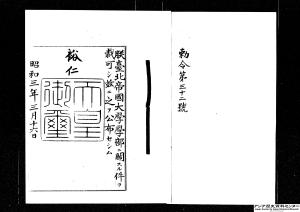 勅令第三十二號
朕臺北帝國大學學部ニ關スル件ヲ
裁可シ茲ニ之ヲ公布セシム
裕仁
天皇
御璽
昭和三年三月十六日
アジア歴史資料センター